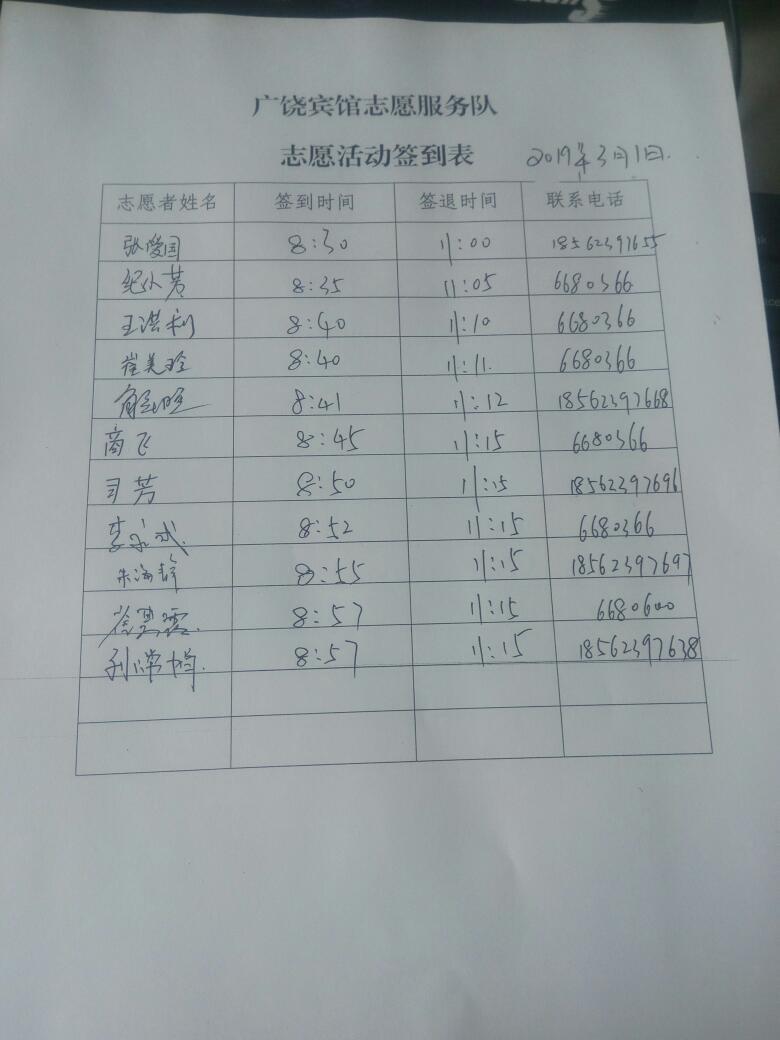 广饶宾馆志愿服务队
志愿活动签到表 2019年3月1日.
志愿者姓名 签到时间 签退时间 联系电话
张爱国 8:30 11:00 18562397655
纪小芳 8:35 11:05 6680366
王洪利 8:40 11:10 6680366
崔美玲 8:40 11:11. 6680366
8:41 11:12 18562397668
商飞 8:45 11:15 6680366
司芳 8:50 11:15 18562397696
李 8:52 11:15 6680366
朱海静 8:55 11:15 18562397697
8:57 11:15 6680600
8:57 11:15 18562397638